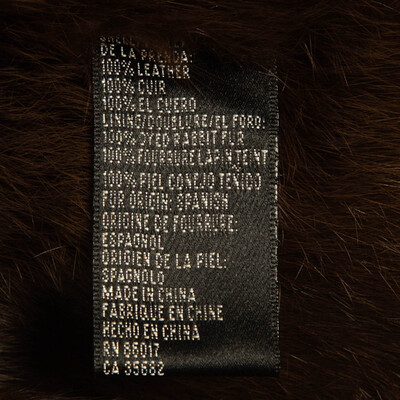 DE LA PRENDA:
100% LEATHER
100% CUIR
100% EL CUERO
LINING/COUBLURE/EL FORO:
100% DYED RABBIT FUR
100% FOURRURE LAPIN TEINT
100% PIEL CONEJO TENIDO
FUR ORIGIN: SPANISH
ORIGINE DE FOURRURE:
ESPAGNOL
ORIGIEN DE LA PIEL:
SPAGNOLO
MADE IN CHINA
FABRIQUE EN CHINE
HECHO EN CHINA
RN 86017
CA 35682